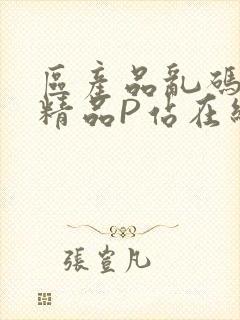 區產品亂碼
精品P站在
張萱凡